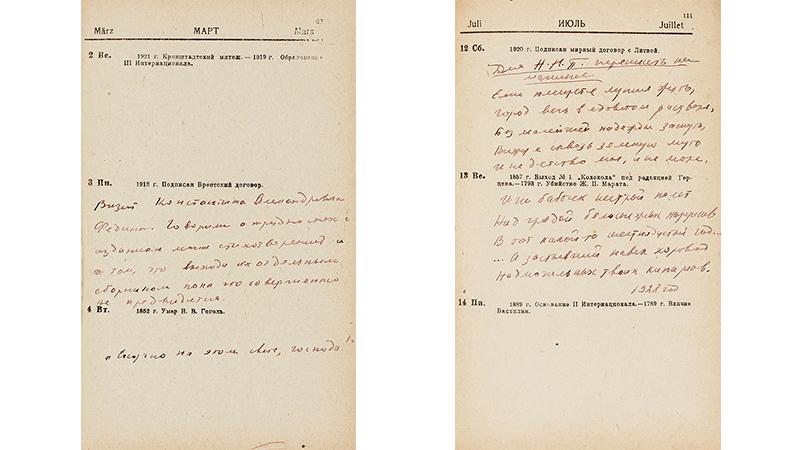 67
März МАРТ Mars
2 Вс. 1921 г. Кронштадтский мятеж. — 1919 г. Образование
III Интернационала.
3 Пн. 1918 г. Подписан Брестский договор.
Визит Константина Александровича
Федина. Говорили о трудностях с
изданием моих стихотворений и
о том, что выход их отдельным
сборником пока что совершенно
не предвидится.
4 Вт. 1852 г. Умер Н. В. Гоголь.
„Скучно на этом свете, господа!"
111
Juli ИЮЛЬ Juillet
12 Сб. 1920 г. Подписан мирный договор с Литвой.
Для Н.Н.П. перепечатать на
машинке
Если плещется лунная жуть,
Город весь в ядовитом растворе,
Без малейшей надежды заснуть,
Вижу я сквозь зеленую муть
И не детство мое, и не море,
13 Вс. 1857 г. Выход № 1 „Колокола" под редакцией Гер-
цена.—1793 г. Убийство Ж. П. Марата.
И не бабочек пестрый полет
Над грядой белоснежных нарциссов
В тот какой-то шестнадцатый год...
... А застывший навек хоровод
Надмогильных твоих кипарисов.
1928 год
14 Пн. 1889 г. Основание II Интернационала.—1789 г. Взятие
Бастилии.